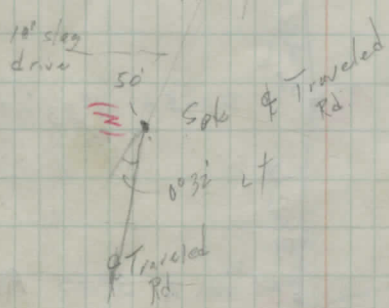 10' slag
drive
50'
Spk ℄ Traveled
Rd.
0°32' LT
℄ Traveled
Rd.